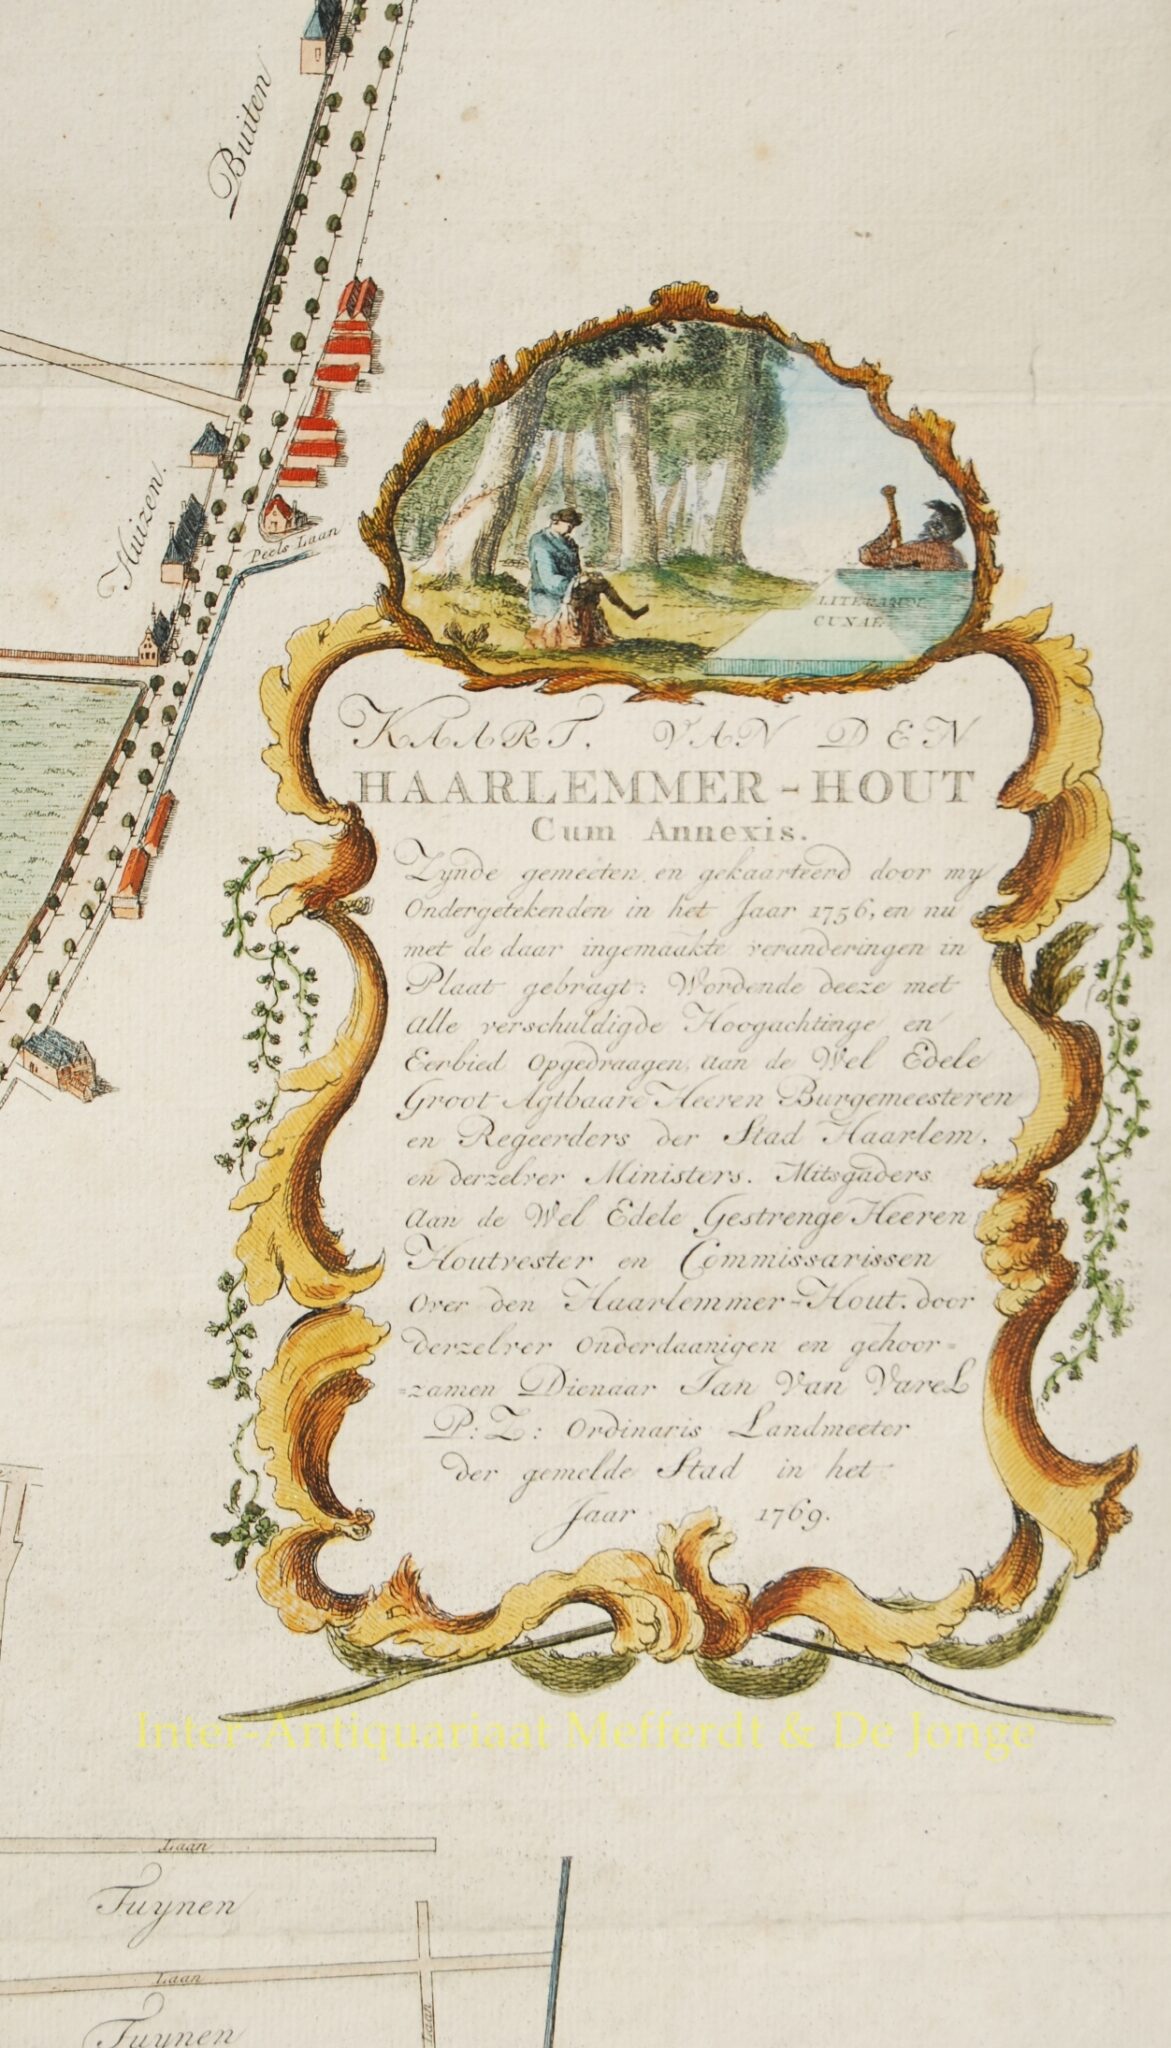 Buiten
Huizen.
Peels Laan
LITERARUM
CUNAE
KAART. VAN DEN
HAARLEMMER-HOUT
Cum Annexis.
Zynde gemeeten en gekaarteerd door my
Ondergetekenden in het Jaar 1756, en nu
met de daar ingemaakte veranderingen in
Plaat gebragt: Wordende deeze met
Alle verschuldigde Hoogachtinge en
Eerbied Opgedraagen, aan de Wel Edele
Groot Agtbaare Heeren Burgemeesteren
en Regeerders der Stad Haarlem.
en derzelver Ministers. Mitsgaders
Aan de Wel Edele Gestrenge Heeren
Houtvester en Commissarissen
Over den Haarlemmer-Hout. door
derzelver Onderdaanigen en gehoor=
=zamen Dienaar Jan Van Varel
P: Z: Ordinaris Landmeeter
der gemelde Stad in het
Jaar 1769.
Inter-Antiquariaat Mefferdt & De Jonge
Laan
Tuynen
Laan
Laan
Tuynen